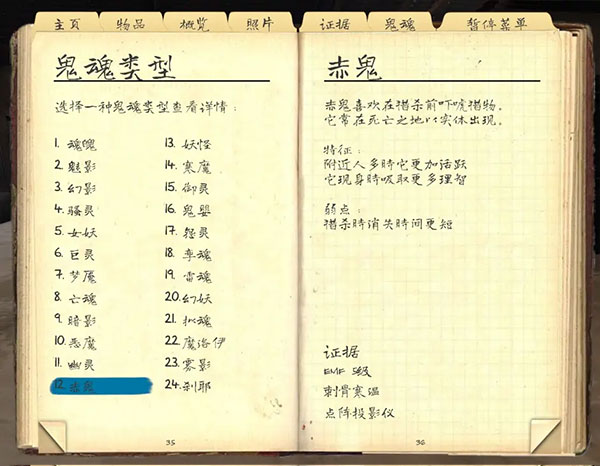 主页 物品 概览 照片 证据 鬼魂 暂停菜单
鬼魂类型
选择一种鬼魂类型查看详情：
1. 魂魄
2. 魅影
3. 幻影
4. 骚灵
5. 女妖
6. 巨灵
7. 梦魇
8. 亡魂
9. 暗影
10. 恶魔
11. 幽灵
12. 赤鬼
13. 妖怪
14. 寒魔
15. 御灵
16. 鬼婴
17. 怨灵
18. 孪魂
19. 雷魂
20. 幻妖
21. 拟魂
22. 魔洛伊
23. 雾影
24. 刹耶
35
赤鬼
赤鬼喜欢在猎杀前吓唬猎物。
它常在死亡之地以实体出现。
特征：
附近人多时它更加活跃
它现身时吸取更多理智
弱点：
猎杀时消失时间更短
证据
EMF 5级
刺骨寒温
点阵投影仪
36